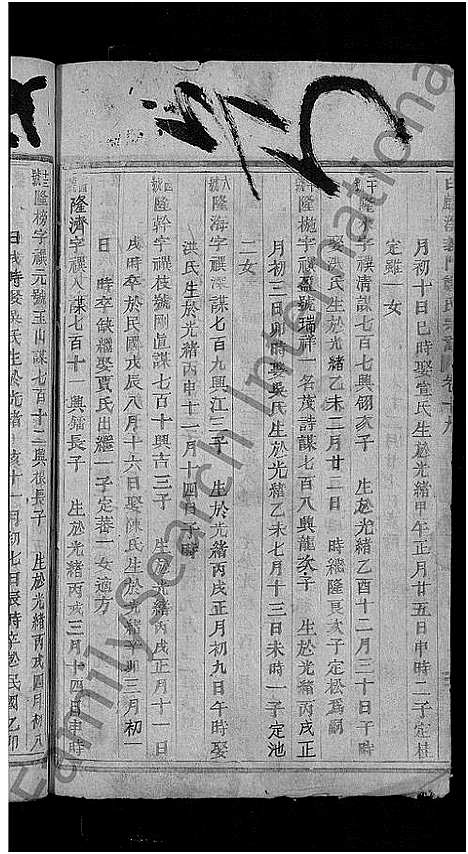 月初十日巳時娶宣氏生於光緒甲午正月廿五日申時二子定桂
定雖一女
隆水字禩清謀七百七興翎次子 生於光緒乙酉十二月三十日午時
娶張氏生於光緒乙未二月廿二日 時繼隆良次子定松爲嗣
隆椸字禩盈號瑞祥一名茂詩謀七百八興龍次子 生於光緒丙戌正
月初二日卯時娶吳氏生於光緒乙未七月十三日未時一子定池
二女
隆海字禩深謀七百九興江三子 生於光緒丙戌正月初九日午時娶
洪氏生於光緒丙申十一月十四日子時
隆幹字禩枝號剛眞謀七百十興吉三子 生於光緒丙戌正月十一日
戌時卒於民國戊辰八月十六日娶陳氏生於光緒辛卯三月初一
日 時卒缺繼娶賈氏出繼一子定蕃一女適方
隆濟字禩人謀七百十一興鐳長子 生於光緒丙戌三月十四日申時
隆榜字禩元號玉山謀七百十二興根長子 生於光緒丙戌四月初八
日戌時娶吳氏生於光緒 亥十一月初七日辰時卒於民國乙卯
FamilySearch International